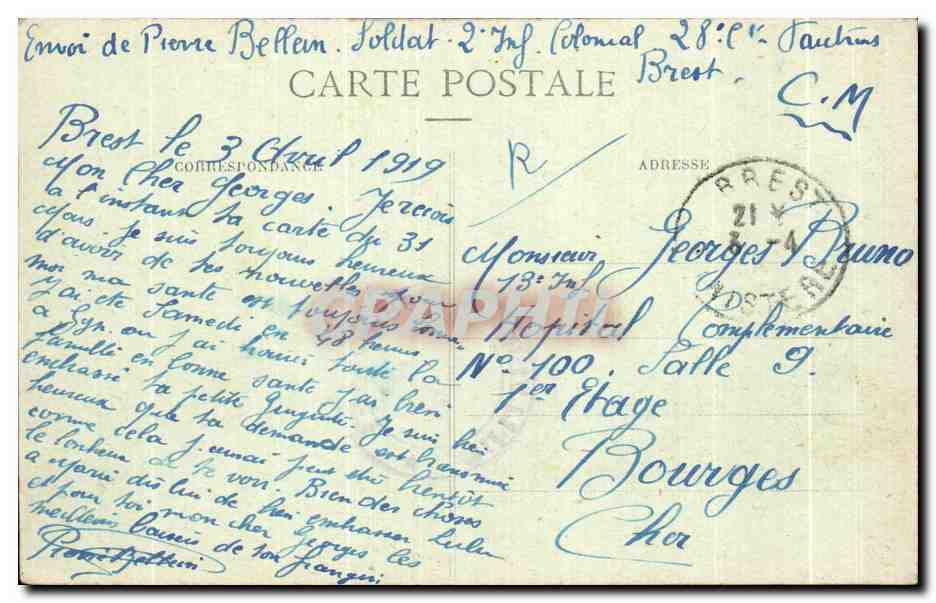 Envoi de Pierre Bellein. Soldat. 2e Inf. Colonial 28e Cie
Brest.
C.M
CARTE POSTALE
CORRESPONDANCE
ADRESSE
R
Brest le 3 Avril 1919
Mon Cher Georges. Je reçois
à l'instant ta carte du 31
Mars. Je suis toujours heureux
d'avoir de tes nouvelles. Pour
moi ma santé est toujours bonne
J'ai été Samedi en 48 heures
à Lyon où j'ai trouvé toute la
famille en bonne santé J'ai bien
embrassé ta petite Je suis bien
heureux que ta demande est transmise
comme cela j'aurai peut être bientôt
le bonheur de te voir. Bien des choses
à Marie dis lui de bien embrasser Lulu
et pour toi mon cher Georges les
meilleurs baisers de ton frangin
Pierre Bellein
Monsieur Georges Bruno
13e Inf.
Hopital Complementaire
No 100. Salle 9.
1er Etage
Bourges
Cher
BREST
21 *
3 - 4
FINISTERE
CPAPHIL